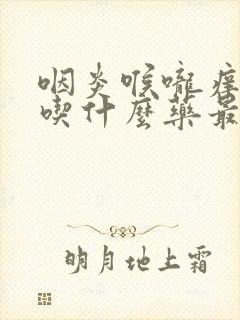 咽炎喉嚨痒
喫什麼藥最
明月地上霜